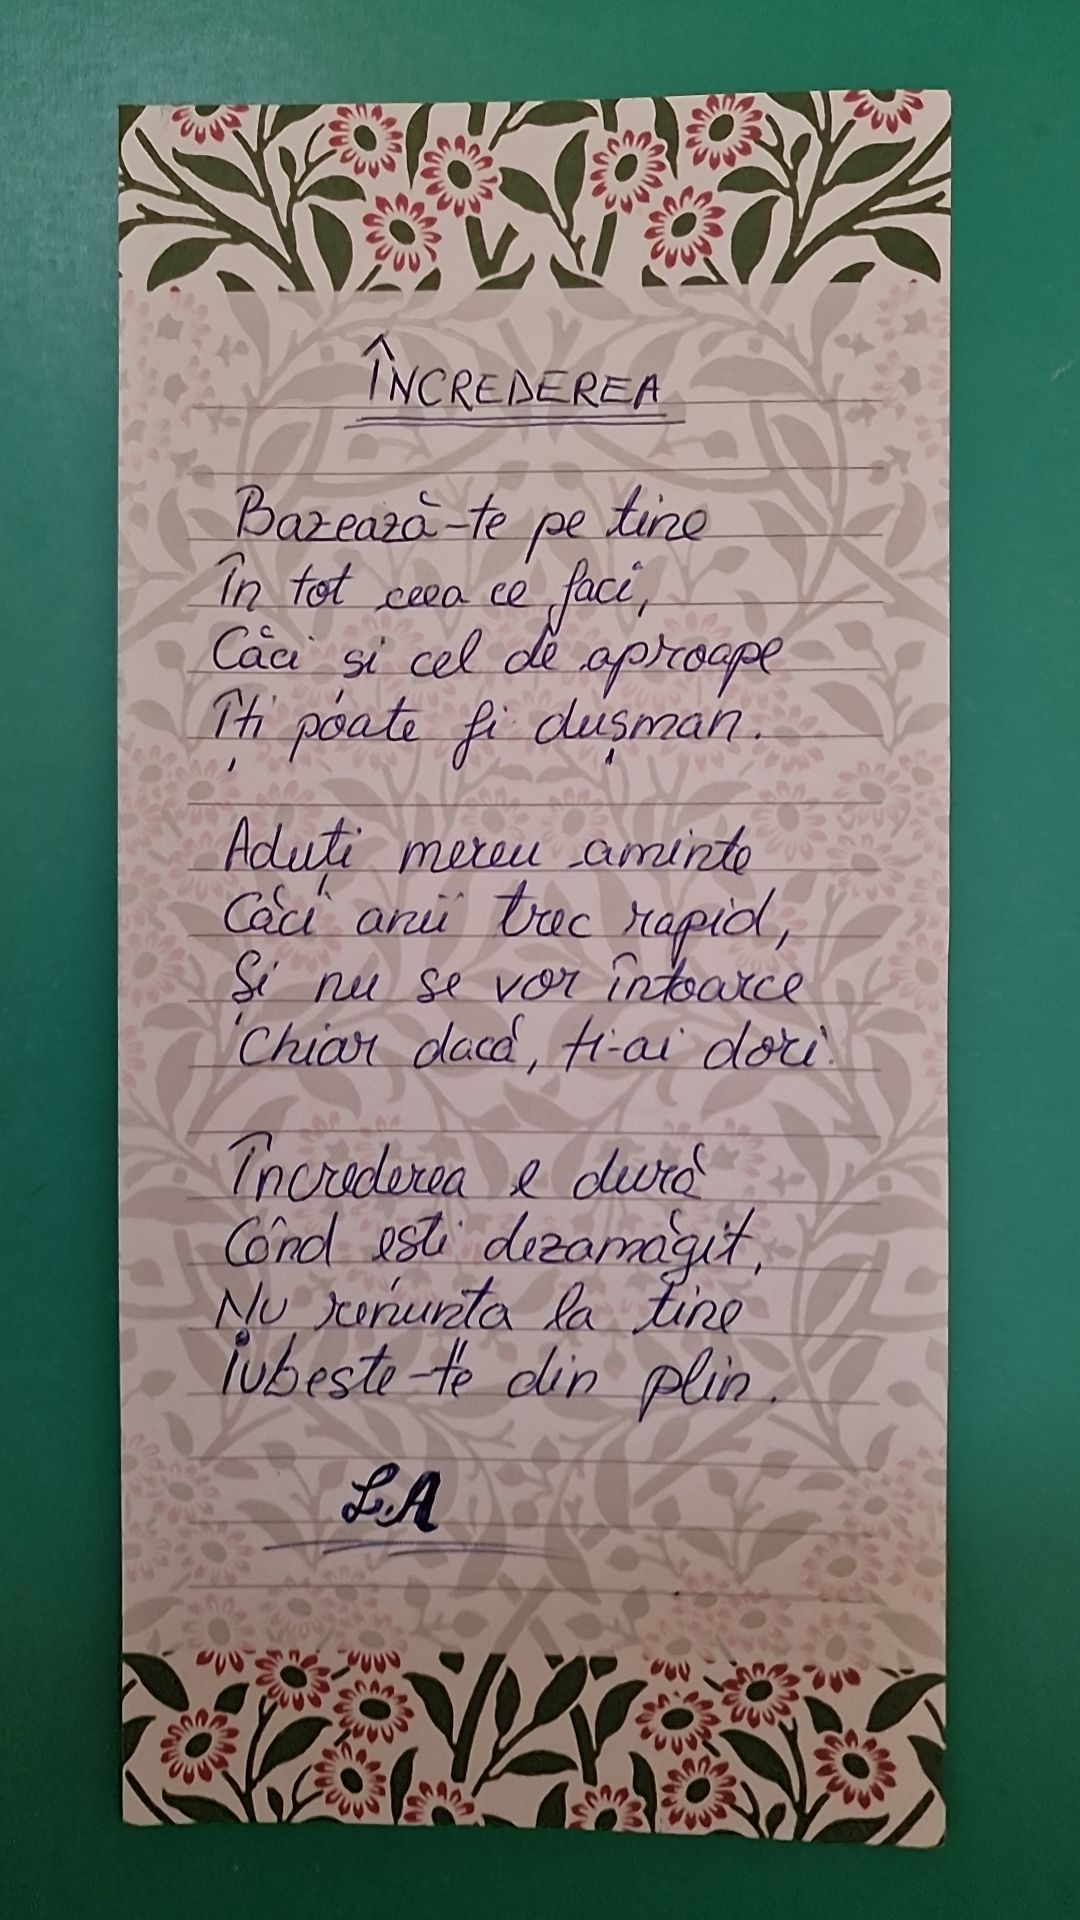 ÎNCREDEREA
Bazează-te pe tine
În tot ceea ce faci,
Căci și cel de aproape
Îți poate fi dușman.
Aduți mereu aminte
Căci anii trec rapid,
Și nu se vor întoarce
Chiar dacă, ți-ai dori.
Încrederea e dură
Când ești dezamăgit,
Nu renunta la tine
Iubeste-te din plin.
L.A